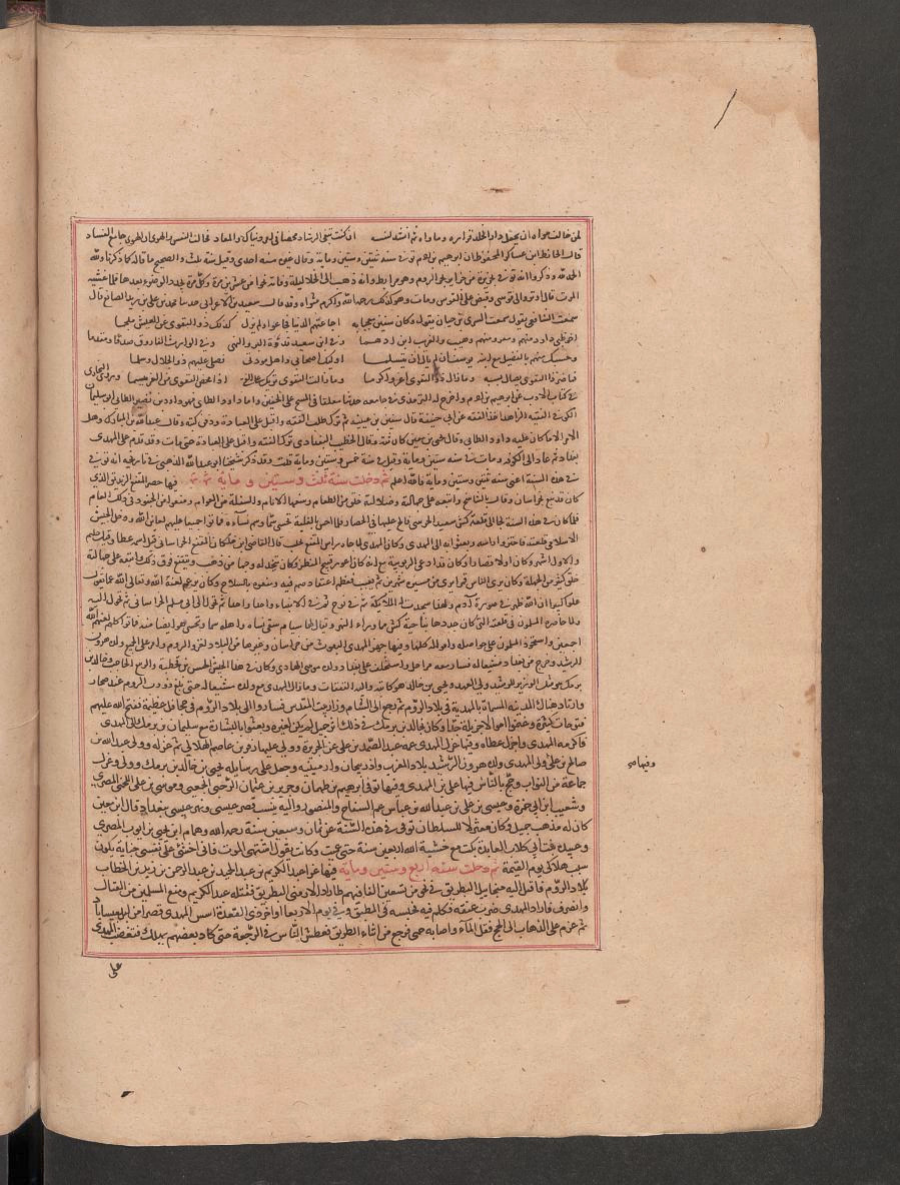 لمن خالف هواه ان يجعل دار الخلد قراره وماواه ثم انشد لنفسه اذ كنت تبغي الرشاد محضا في امر دنياك والمعاد فخالف النفس في الهوى ان الهوى جامع الفساد
قال الحافظ ابن عساكر المحفوظ ان ابرهيم بن ادهم توفي سنة ثنتين وستين وماية وقال غيره سنة احدى وقيل سنة ثلث والصحيح ما قاله كما ذكرنا ولله
الحمد وذكروا انه توفي في جزيرة من جزاير بحر الروم وهو مرابط وانه ذهب الى الخلا ليلة وفاته نحوا من عشرين مرة وكل مرة يجدد الوضوء بعدها فلما غشيه
الموت قال اوتروا لي قوسي وقبض على القوس ومات وهو كذلك رحمه الله واكرم مثواه وقد قال سعيد بن الاعرابي حدثنا محمد بن علي بن يزيد الصائغ قال
سمعت الشافعي يقول سمعت السري بن حيان يقول وكان سفين معجبا به اجاعتهم الدنيا فجاعوا ولم يزل كذلك ذو التقوى عن العيش ملجما
اخو طي داود منهم ومسعر ومنهم وهيب والغريب ابن ادهما وفي ابن سعيد قدوة البر والنهى وفي الوارث الفاروق صدقا ومقدما
وحسبك منهم بالفضيل مع ابنه ويوسف ان لم يال ان يتسلما اولئك اصحابي واهل مودتي فصلى عليهم ذو الجلال وسلما
فما ضر ذا التقوى نصال اسنة وما زال ذو التقوى اعز واكرما وما زالت التقوى تريك على الفتى اذا محض التقوى من العز ميسما وروى البخاري
في كتاب الادب عن ابرهيم بن ادهم واخرج له الترمذي في جامعه حديثا معلقا في المسح على الخفين واما داود الطاي فهو داود بن نصير الطاي ابو سليمان
الكوفي الفقيه الزاهد اخذ الفقه عن ابي حنيفة قال سفين بن عيينة ثم ترك طلب الفقه واقبل على العبادة ودفن كتبه وقال عبد الله بن المبارك وهل
الامر الا ما كان عليه داود الطاي وقال يحيى بن معين كان ثقة وقال الخطيب البغدادي ترك الفقه واقبل على العبادة حتى مات وقد قدم على المهدي
بغداد ثم عاد الى الكوفة ومات في سنة ستين وماية وقيل في سنة خمس وستين وماية قلت وقد ذكر شيخنا ابو عبد الله الذهبي في تاريخه انه توفي في
في هذه السنة اعني سنة ثنتين وستين وماية فالله اعلم ثم دخلت سنة ثلث وستين وماية فيها حصر المقنع الزنديق الذي
كان قد نبغ بخراسان وقال بالتناسخ واتبعه على جهالته وضلالته خلق من الطغام وسفهاء الانام والسفلة من العوام ومنعوا من الجنود في ذلك العام
فلما كان في هذه السنة لجا الى قلعة كش سعيد الحرشي فالح عليها في الحصار فلما احس بالغلبة تحسى سما وسم نساءه فماتوا جميعا عليهم لعاين الله ودخل الجيش
الاسلامي قلعته فاحتزوا راسه وبعثوا به الى المهدي وكان المهدي لما جاه راس المقنع بحلب قال القاضي ابن خلكان المقنع الخراساني قيل اسمه عطا وقيل حكيم
والاول اشهر وكان اولا قصارا وكان قد ادعى الربوبية مع انه كان اعور قبيح المنظر وكان يتخذ له وجها من ذهب ويتقنع فوق ذلك واتبعه على جهالته
خلق كثير من الجهلة وكان يري الناس قمرا يرى من مسيرة شهرين ثم يغيب فعظم اعتقادهم فيه ومنعوه بالسلاح وكان يزعم لعنه الله وتعالى الله عما يقول
علوا كبيرا ان الله ظهر في صورة آدم ولهذا سجدت له الملايكة ثم في نوح ثم في الانبياء واحدا واحدا ثم تحول الى ابي مسلم الخراساني ثم تحول اليه
ولما حاصره المسلمون في قلعته التي كان جددها بناحية كش مما وراء النهر ويقال لها سيام سقى نساءه واهله سما وتحسى هو ايضا منه فماتوا كلهم لعنهم الله
اجمعين واستحوذ المسلمون على حواصله وامواله كلها وفيها جهز المهدي البعوث من خراسان وغيرها من البلاد لغزو الروم وامر على الجميع ولده هرون
الرشيد وخرج من بغداد مشيعا له فسار معه مراحل واستخلف على بغداد ولده موسى الهادي وكان في هذا الجيش الحسن بن قحطبة والربيع الحاجب وخالد بن
برمك وهو مثل الوزير للرشيد ولي العهد ويحيى بن خالد هو كاتبه واليه النفقات وما زال المهدي مع ولده مشيعا له حتى بلغ دروب الروم عند جيحان
وارتاد هناك المدينة المسماة بالمهدية في بلاد الروم ثم رجع الى الشام وزار بيت المقدس فسار والى بلاد الروم في جحافل عظيمة ففتح الله عليهم
فتوحات كثيرة وغنموا اموالا جزيلة جدا وكان لخالد بن برمك في ذلك اثر جميل لم يكن لغيره وبعثوا بالبشارة مع سليمان بن برمك الى المهدي
فاكرمه المهدي واجزل عطاءه وفيها عزل المهدي عمه عبد الصمد بن علي عن الجزيرة وولى عليها زفر بن عاصم الهلالي ثم عزله وولى عبد الله بن
صالح بن علي وفيها ولى المهدي ولده هرون الرشيد بلاد المغرب واذربيجان وارمينية وجعل على رسايله يحيى بن خالد بن برمك وولى وعزل
جماعة من النواب وحج بالناس فيها علي بن المهدي وفيها توفي ابرهيم بن طهمان وحريز بن عثمان الرحبي الحمصي وموسى بن علي اللخمي المصري
وشعيب ابن ابي حمزة وعيسى بن علي بن عبد الله بن عباس عم السفاح والمنصور واليه ينسب قصر عيسى ونهر عيسى ببغداد قال ابن معين
كان له مذهب جميل وكان معتزلا للسلطان توفي في هذه السنة عن ثمان وسبعين سنة رحمه الله وهمام ابن يحيى ويحيى بن ايوب المصري
وعبيدة بنت ابي كلاب العابدة بكت مع خشية الله اربعين سنة حتى عميت وكانت تقول اشتهي الموت فاني اخشى على نفسي جناية يكون
سبب هلاكي يوم القيمة ثم دخلت سنة اربع وستين وماية فيها غزا عبد الكريم بن عبد الحميد بن عبد الرحمن بن زيد بن الخطاب
بلاد الروم فاقبل اليه ميخاييل البطريق في نحو من تسعين الفا فيهم طازاد الارمني البطريق ففشل عنه عبد الكريم ومنع المسلمين من القتال
وانصرف فاراد المهدي ضرب عنقه فكلم فيه فحبسه في المطبق وفي يوم الاربعا اواخر ذي القعدة اسس المهدي قصرا من لبن بعيساباد
ثم عزم على الذهاب الى الحج فقل الماء واصابه حمى فرجع من اثناء الطريق فعطش الناس في الرجعة حتى كاد بعضهم يهلك فغضب المهدي
على
وفيها